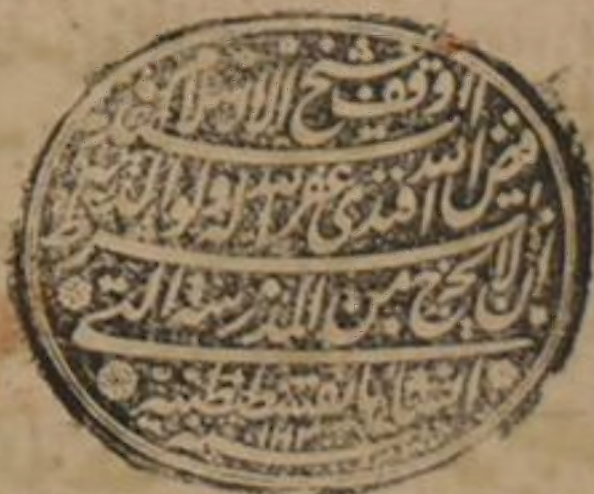 اوقف شيخ الاسلام السيد
فيض الله افندى غفر الله له ولوالديه
بشرط ان لا يخرج من المدرسة التى
انشاها بالقسطنطينية
سنة ١١١٣